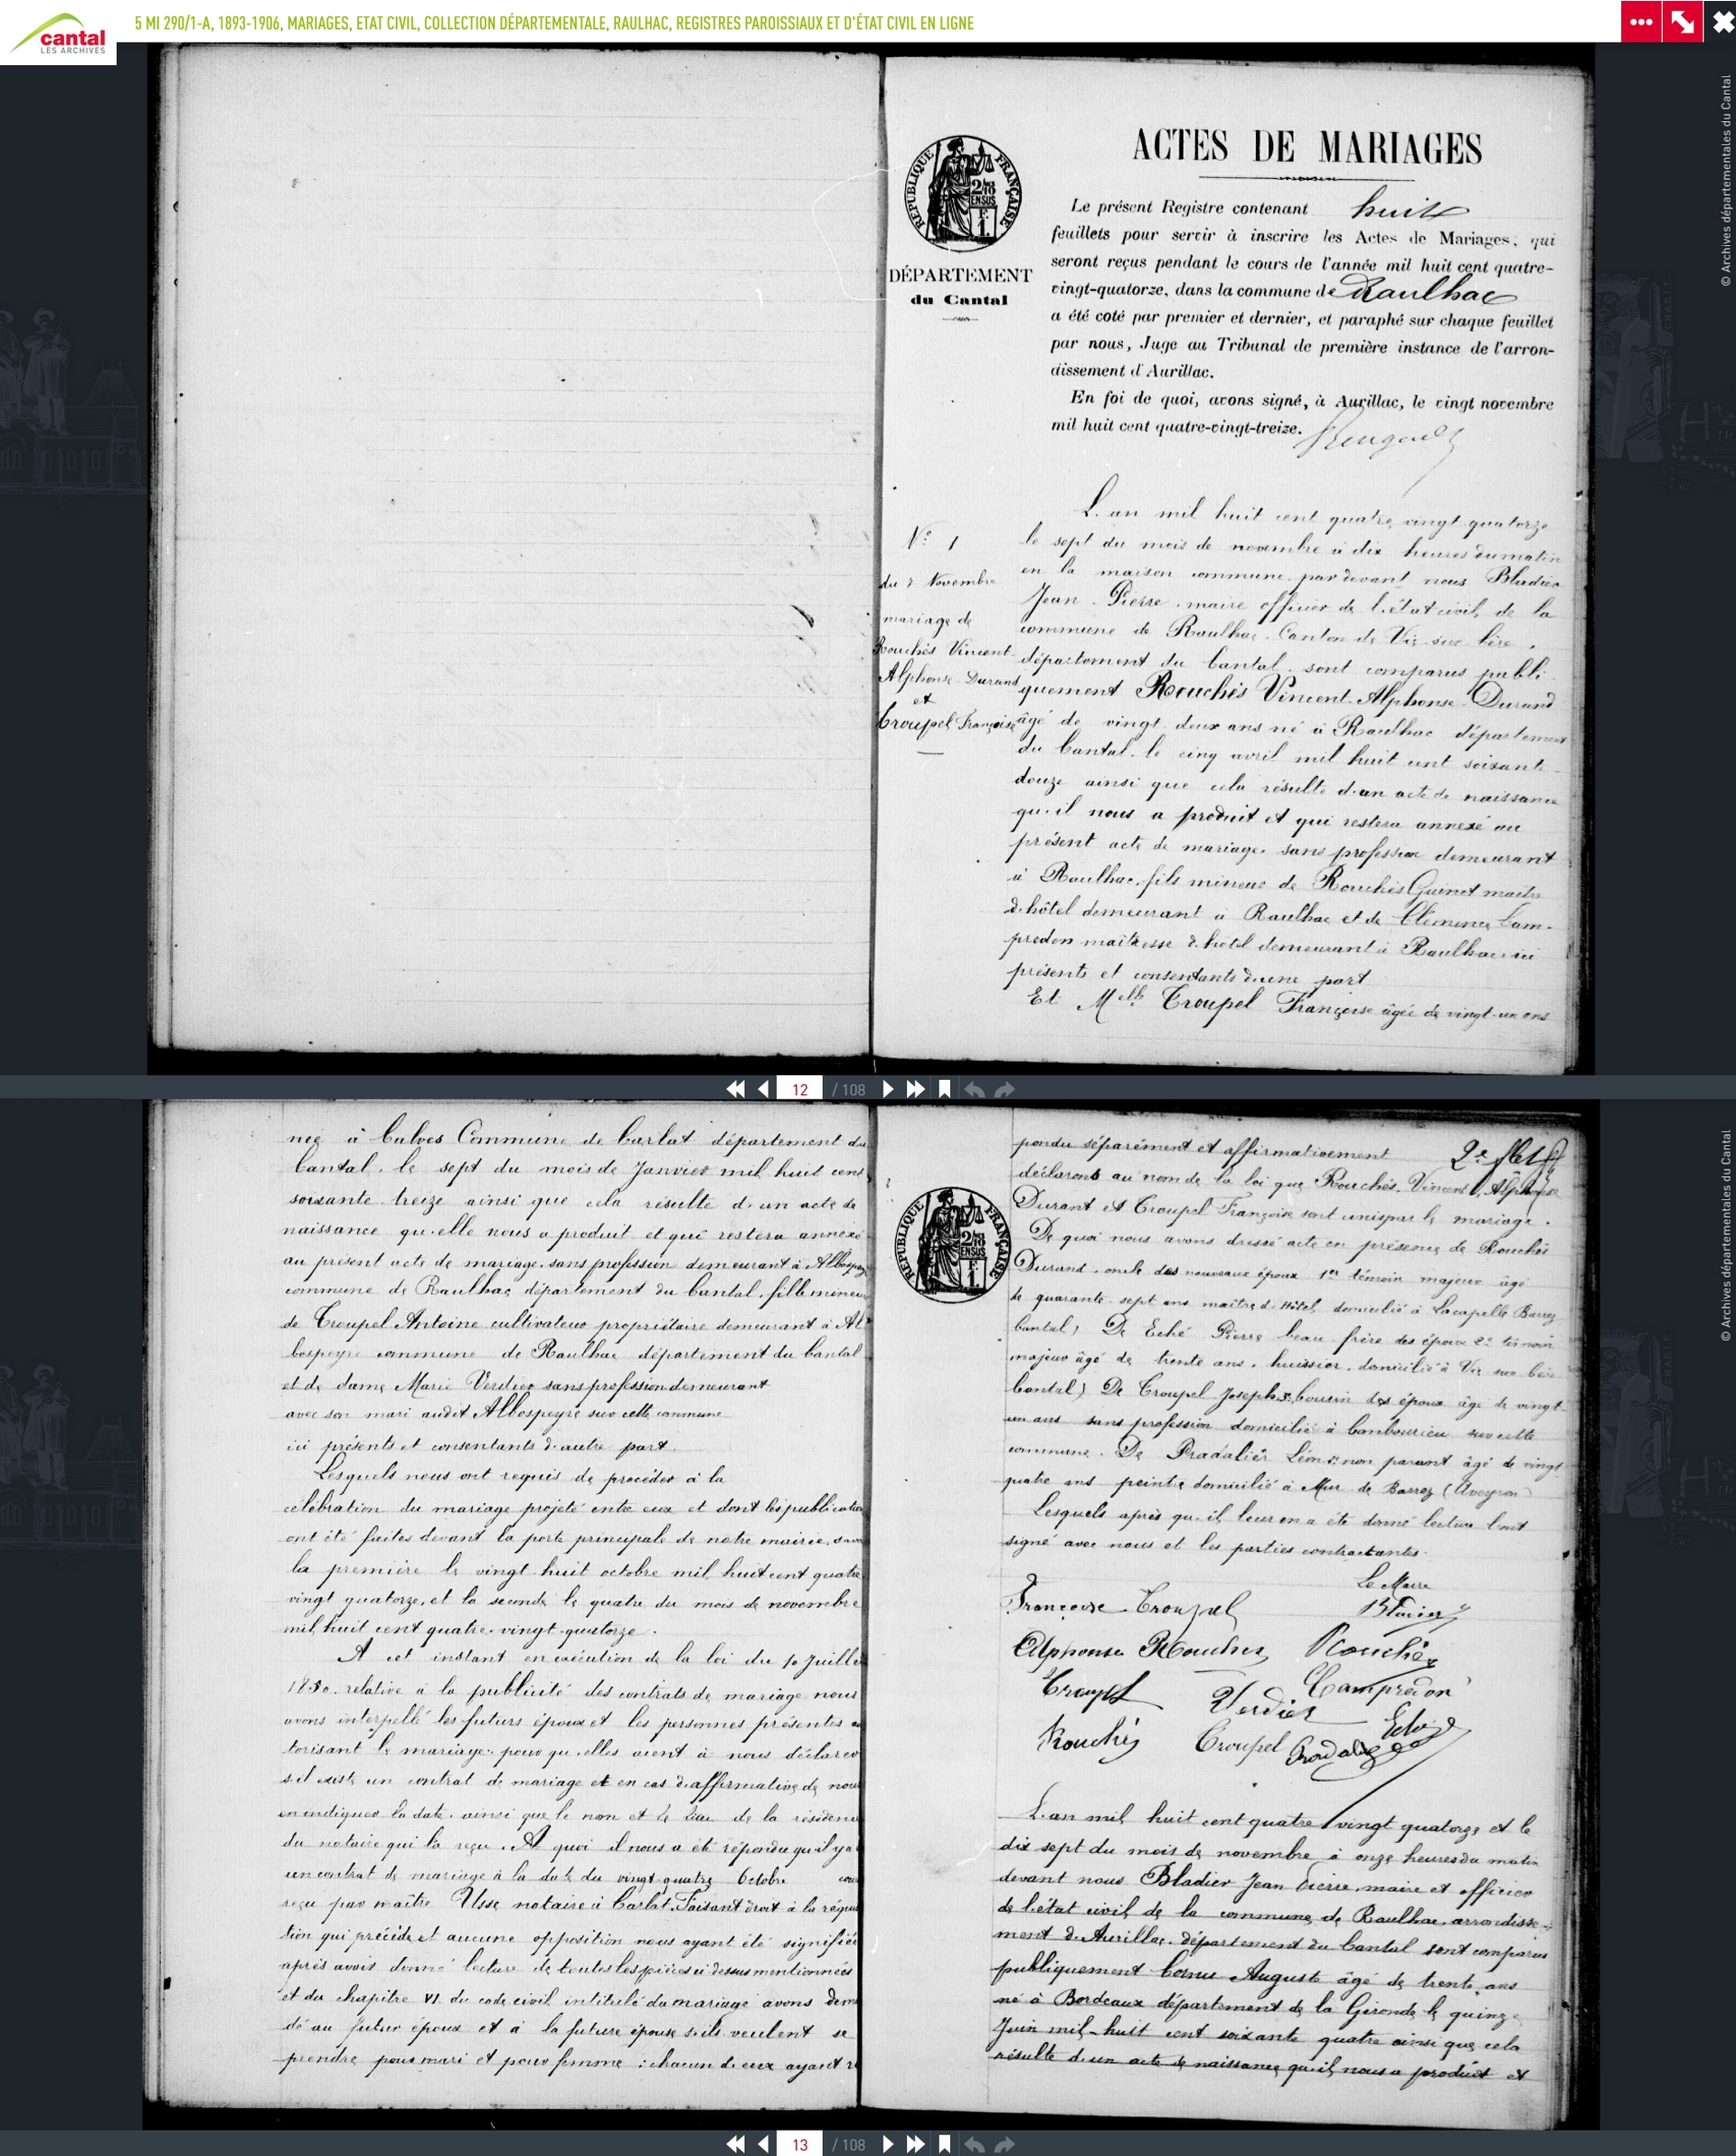 cantal
LES ARCHIVES
5 MI 290/1-A, 1893-1906, MARIAGES, ETAT CIVIL, COLLECTION DÉPARTEMENTALE, RAULHAC, REGISTRES PAROISSIAUX ET D'ÉTAT CIVIL EN LIGNE
© Archives départementales du Cantal
RÉPUBLIQUE FRANÇAISE
DÉPARTEMENT
du Cantal
ACTES DE MARIAGES
Le présent Registre contenant huit
feuillets pour servir à inscrire les Actes de Mariages, qui
seront reçus pendant le cours de l'année mil huit cent quatre-
vingt-quatorze, dans la commune de Raulhac
a été coté par premier et dernier, et paraphé sur chaque feuillet
par nous, Juge au Tribunal de première instance de l'arron-
dissement d'Aurillac.
En foi de quoi, avons signé, à Aurillac, le vingt novembre
mil huit cent quatre-vingt-treize.
N° 1
du 7 Novembre
mariage de
Rouchès Vincent
Alphonse Durand
et
Troupel Françoise
L'an mil huit cent quatre vingt quatorze
le sept du mois de novembre à dix heures du matin
en la maison commune par devant nous Bladier
Jean Pierre maire officier de l'état civil de la
commune de Raulhac Canton de Vic sur Cère
département du Cantal sont comparus publi
quement Rouchès Vincent Alphonse Durand
âgé de vingt deux ans né à Raulhac département
du Cantal le cinq avril mil huit cent soixante
douze ainsi que cela résulte d'un acte de naissance
qu'il nous a produit et qui restera annexé au
présent acte de mariage sans profession demeurant
à Raulhac, fils mineur de Rouchès Guinot maître
d'hôtel demeurant à Raulhac et de Clémence Cam-
predon maîtresse d'hôtel demeurant à Raulhac ici
présents et consentants d'une part
Et Melle Troupel Françoise âgée de vingt-un ans
12 / 108
née à Calves Commune de Carlat département du
Cantal le sept du mois de Janvier mil huit cent
soixante treize ainsi que cela résulte d'un acte de
naissance qu'elle nous a produit et qui restera annexé
au présent acte de mariage sans profession demeurant à
commune de Raulhac département du Cantal fille mineure
de Troupel Antoine cultivateur propriétaire demeurant à Al
bospeyre commune de Raulhac département du Cantal
et de dame Marie Verdier sans profession demeurant
avec son mari audit Albospeyre sur cette commune
ici présents et consentants d'autre part.
Lesquels nous ont requis de procéder à la
célébration du mariage projeté entre eux et dont les publications
ont été faites devant la porte principale de notre mairie,
la première le vingt huit octobre mil huit cent quatre
vingt quatorze, et la seconde le quatre du mois de novembre
mil huit cent quatre vingt quatorze.
A cet instant en exécution de la loi du 10 Juillet
1850 relative à la publicité des contrats de mariage nous
avons interpellé les futurs époux et les personnes présentes au
torisant le mariage pour qu'elles aient à nous déclarer
s'il existe un contrat de mariage et en cas d'affirmative de nous
en indiquer la date ainsi que le nom et le lieu de la résidence
du notaire qui l'a reçu. A quoi il nous a été répondu qu'il y a
un contrat de mariage à la date du vingt quatre Octobre
reçu par maître Usse notaire à Carlat. Faisant droit à la réqui
tion qui précède et aucune opposition nous ayant été signifiée
après avoir donné lecture de toutes les pièces ci dessus mentionnées
et du chapitre VI du code civil intitulé du mariage avons deman
dé au futur époux et à la future épouse s'ils veulent se
prendre pour mari et pour femme : chacun d'eux ayant ré
2e
RÉPUBLIQUE FRANÇAISE
pondu séparément et affirmativement
déclarons au nom de la loi que Rouchès Vincent Alphonse
Durant et Troupel Françoise sont unis par le mariage.
De quoi nous avons dressé acte en présence de Rouchès
Durand oncle des nouveaux époux 1er témoin majeur âgé
de quarante sept ans maître d'Hôtel domicilié à Lacapelle Barrez
Cantal) De Eché Pierre beau frère des époux 2e témoin
majeur âgé de trente ans, huissier, domicilié à Vic sur Cère
Cantal) De Troupel Joseph cousin des époux âgé de vingt
un ans sans profession domicilié à sur cette
commune. De Pradalier Léon non parent âgé de vingt
quatre ans peintre domicilié à Mur de Barrez (Aveyron)
Lesquels après qu'il leur en a été donné lecture l'ont
signé avec nous et les parties contractantes.
Le Maire
Françoise Troupel Bladier
Alphonse Rouchès Rouchès
Troupel Verdier Campredon
Rouchès Troupel Pradalier Eché
L'an mil huit cent quatre vingt quatorze et le
dix sept du mois de novembre à onze heures du matin
devant nous Bladier Jean Pierre, maire et officier
de l'état civil de la commune de Raulhac, arrondisse-
ment d'Aurillac, département du Cantal sont comparus
publiquement Cornu Auguste âgé de trente ans
né à Bordeaux département de la Gironde le quinze
Juin mil-huit cent soixante quatre ainsi que cela
résulte d'un acte de naissance qu'il nous a produit et
© Archives départementales du Cantal
13 / 108